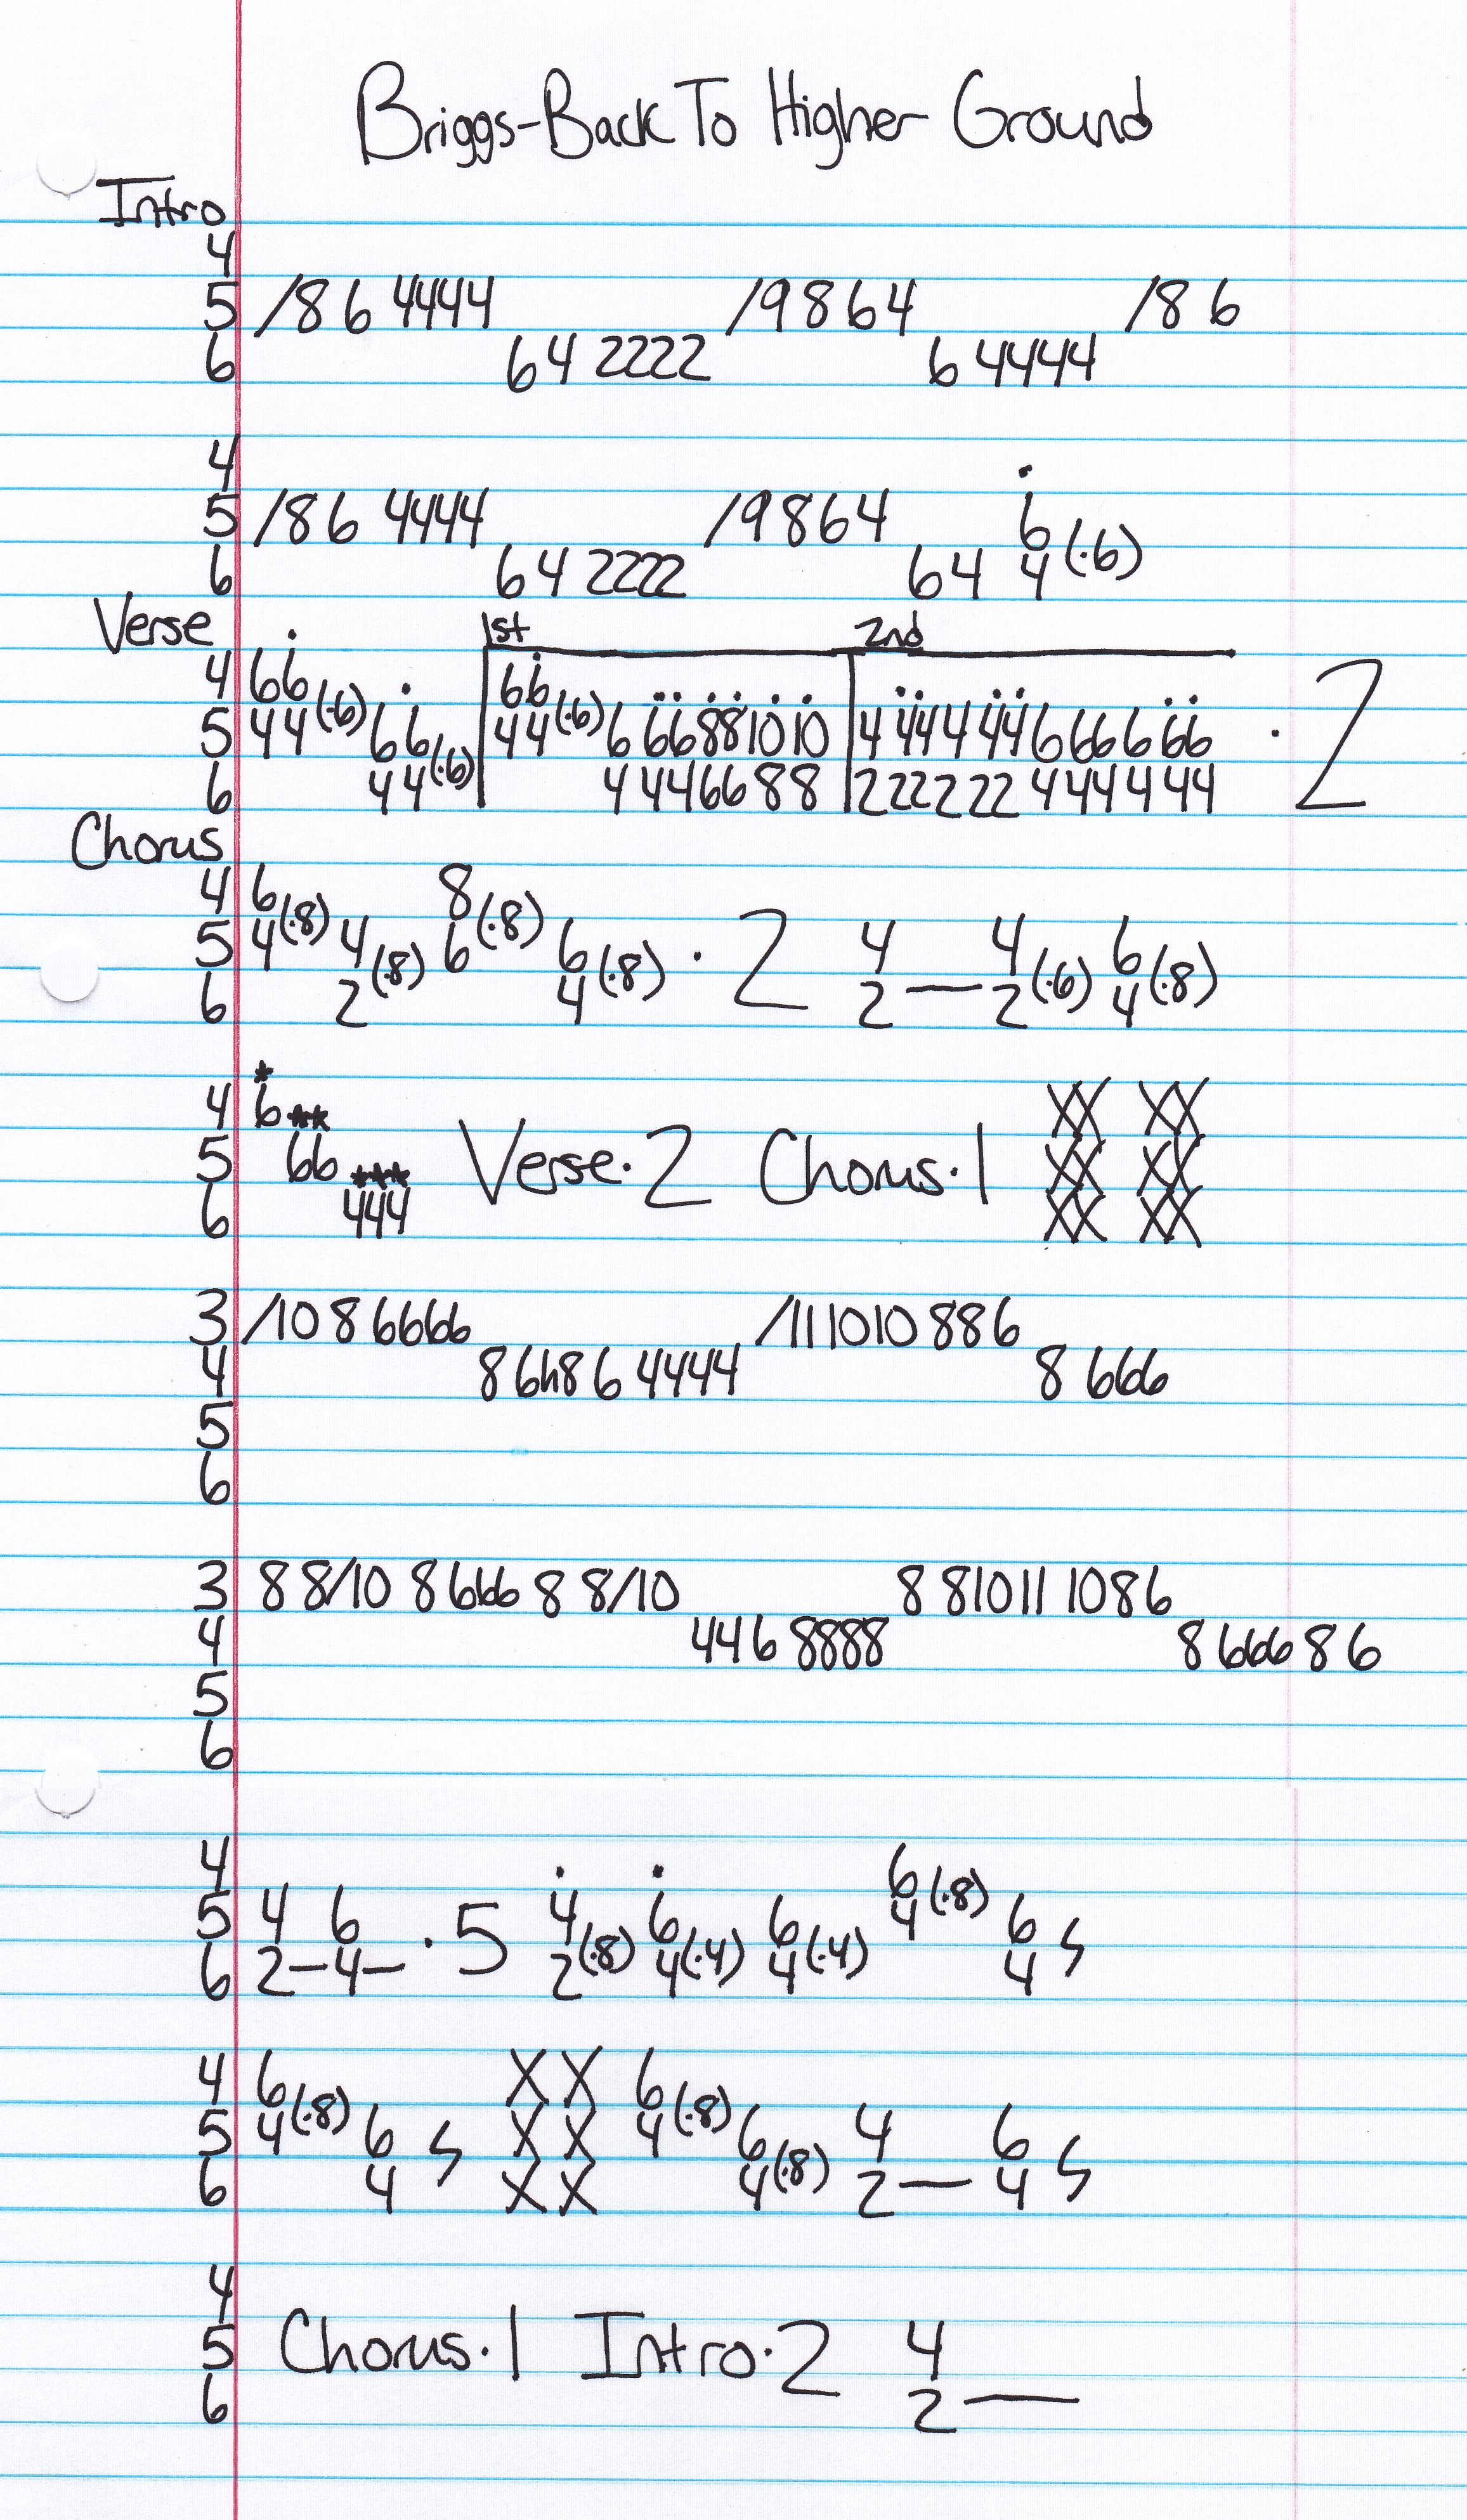 Briggs-Back To Higher Ground
Intro
4
5 /8 6 4444 /9 8 6 4 /8 6
6 6 4 2222 6 4444
4
5 /8 6 4444 /9 8 6 4 6 (·6)
6 6 4 2222 6 4 4
Verse 1st 2nd
4 66 66
5 44 (·6) 66 44 (·6) 6 66 88 10 10 4 44 4 44 6 66 6 66 · 2
6 44 (·6) 4 44 66 8 8 2 22 2 22 4 44 4 44
Chorus
4 6 8
5 4 (·8) 4 6 (·8) 6 · 2 4 4 6
6 2 (·8) 4 (·8) 2 — 2 (·6) 4 (·8)
4 6 ** XX XX
5 66 *** Verse·2 Chorus·1 XX XX
6 444 XX XX
3 /10 8 6666 /11 10 10 8 8 6
4 8 6h8 6 4444 8 666
5
6
3 8 8/10 8 666 8 8/10 8 8 10 11 10 8 6
4 4 4 6 8888 8 666 8 6
5
6
4 6 (·8)
5 4 6 · 5 4 6 6 4 6
6 2 — 4 — 2 (·8) 4 (·4) 4 (·4) 4
4 6 X X 6
5 4 (·8) 6 X X 4 (·8) 6 4 6
6 4 X X 4 (·8) 2 — 4
4
5 Chorus·1 Intro·2 4
6 2 —